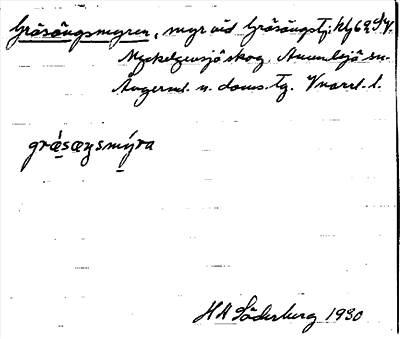 Gräsängsmyren, myr vid Gräsängstj: blj 69 Sy.
Myckelgensjö skog, Anundsjö sn.
Ångerml. n. doms. Tg. Vnorrl. l.
grǽsæŋsmýra
H A Söderberg 1930